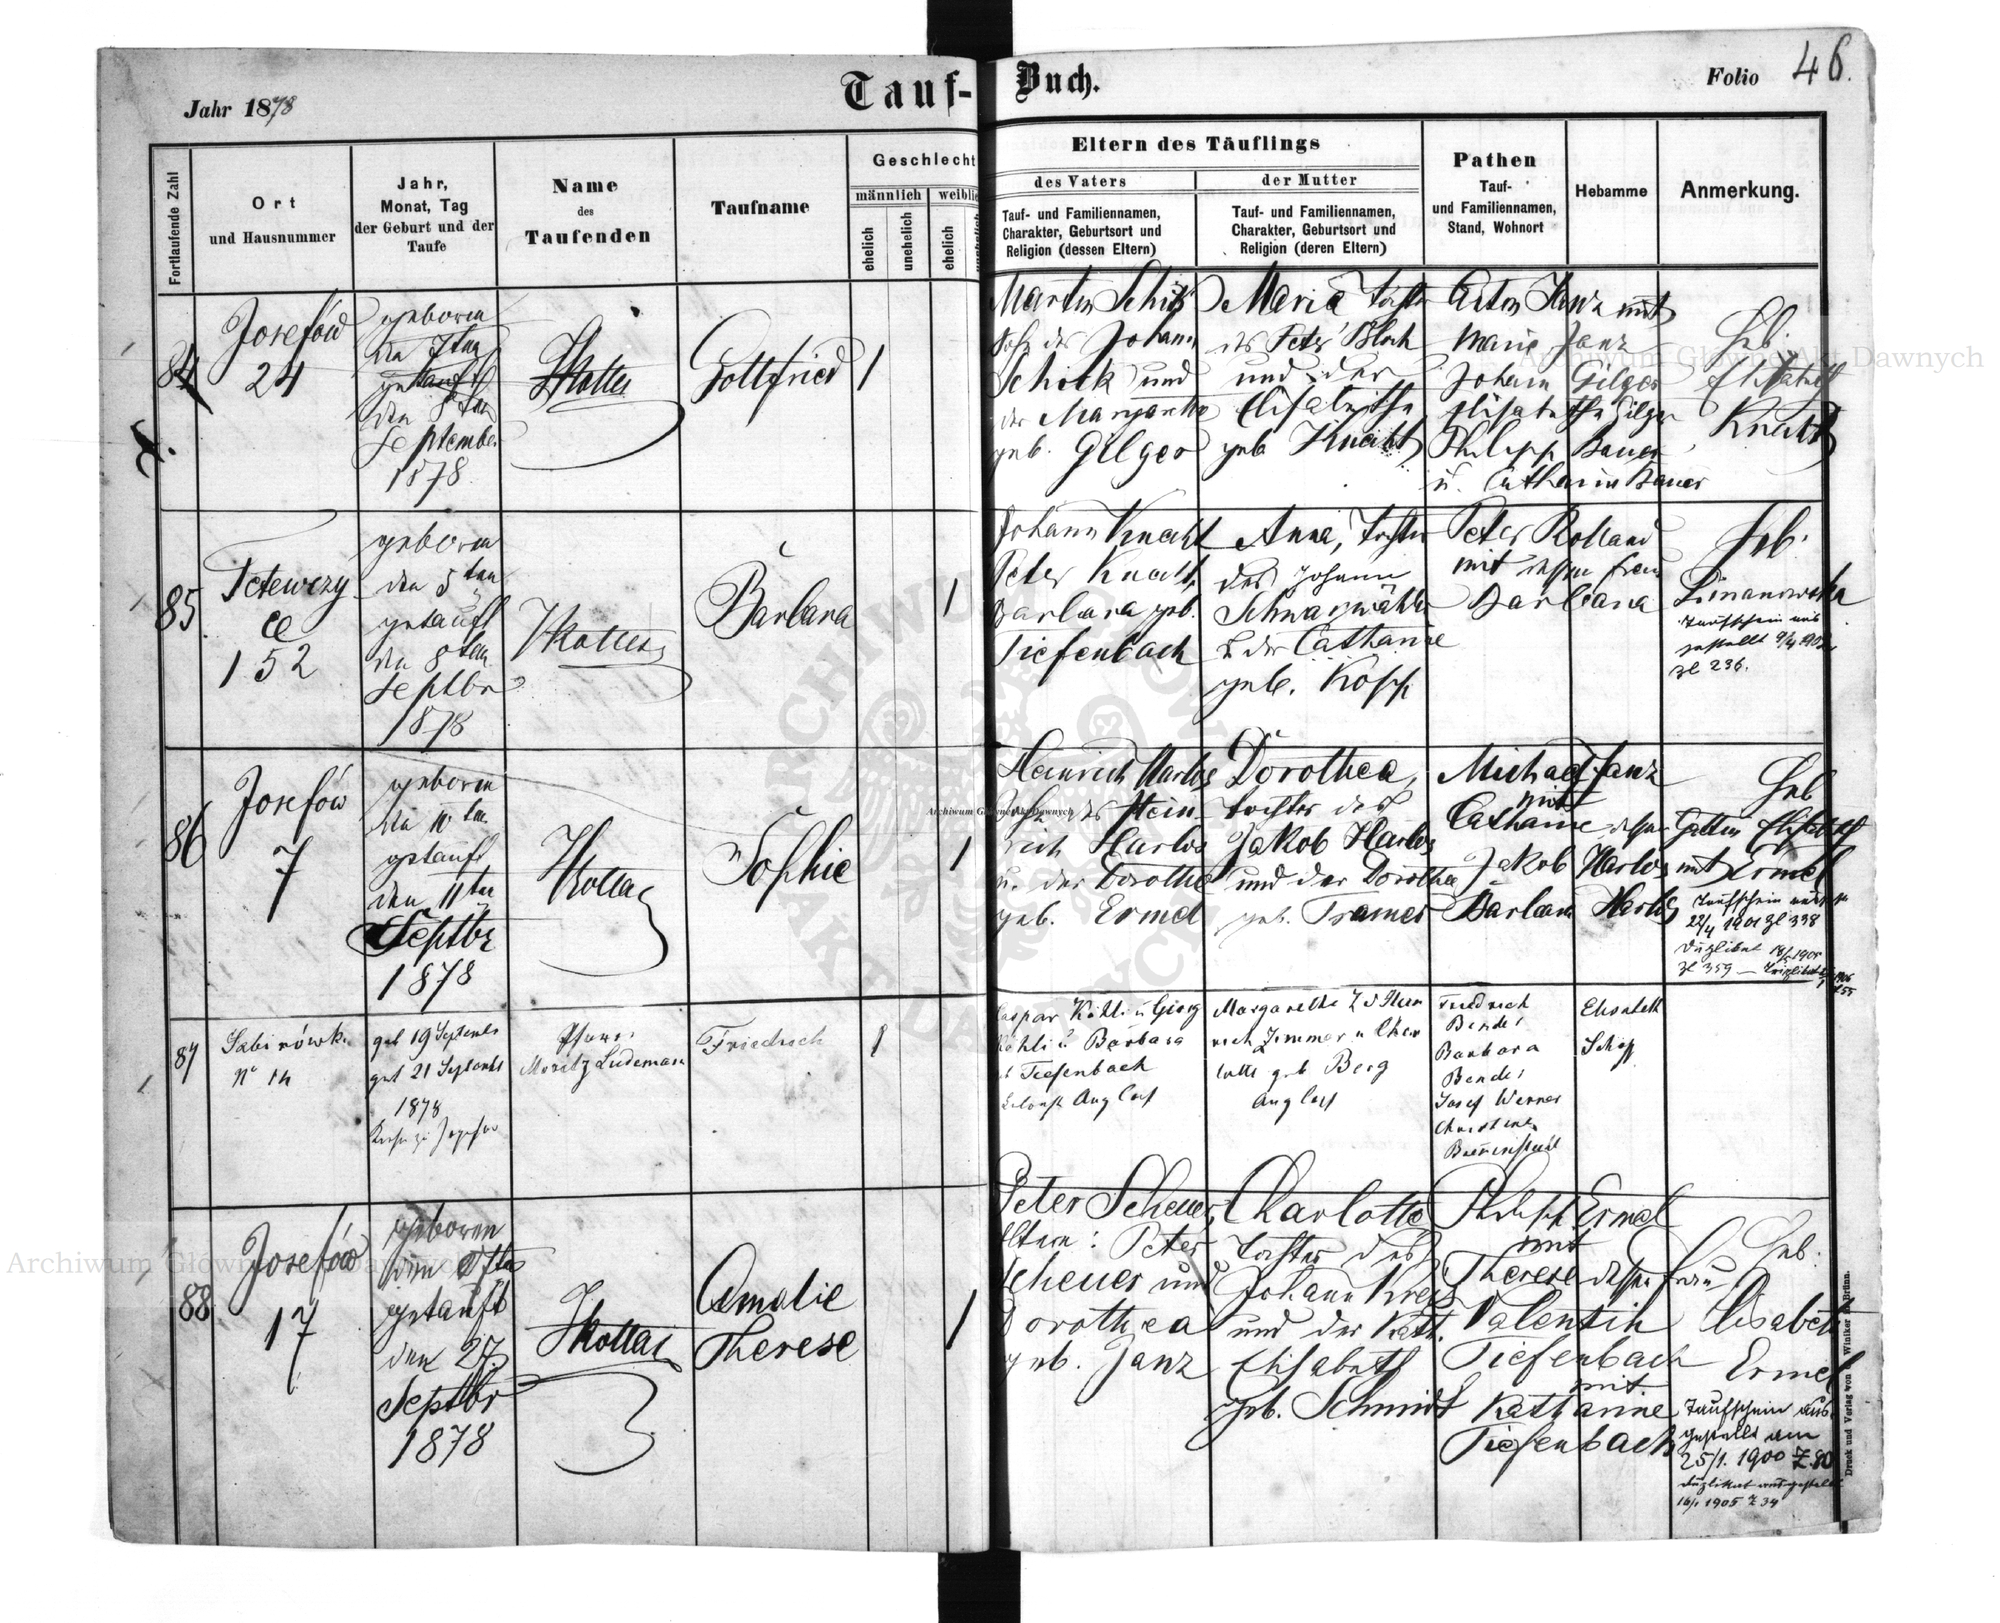 Jahr 1878
Tauf-Buch.
Folio 46.
Fortlaufende Zahl
Ort
und Hausnummer
Jahr,
Monat, Tag
der Geburt und der
Taufe
Name
des
Taufenden
Taufname
Geschlecht
männlich
weiblich
ehelich
unehelich
ehelich
unehelich
Eltern des Täuflings
des Vaters
Tauf- und Familiennamen,
Charakter, Geburtsort und
Religion (dessen Eltern)
der Mutter
Tauf- und Familiennamen,
Charakter, Geburtsort und
Religion (deren Eltern)
Pathen
Tauf-
und Familiennamen,
Stand, Wohnort
Hebamme
Anmerkung.
84
Josefów
24
geboren
den 7ten
getauft
den 8ten
September
1878
Gottfried
1
Martin Schick
Johann
Schick und
der Margaretha
geb. Gilger
Maria Tochter
des Peter Bloch
und der
Elisabetha
geb Knecht
Anton Janz mit
Marie Janz
Johann Gilger
Elisabetha Gilger
Philipp Bauer
u. Catharina Bauer
Heb.
Elisabeth
Knecht
85.
Tetewczy
ce
152
geboren
den 5ten
getauft
den 8ten
Septbr
1878
Barbara
1
Johann Knecht
Peter Knecht,
Barbara geb.
Tiefenbach
Anna, Tochter
des Johann
Schwarzwälder
u der Catharine
geb. Kopp
Peter Rolland
mit dessen Frau
Barbara
Heb.
Limanowska
Taufschein aus
gestellt
Zl 236.
86
Josefów
7
geboren
den 10ten
getauft
den 11ten
Septbr
1878
Sophie
1
Heinrich Harlos
Sohn des Hein
rich Harlos
u. der Dorothea
geb. Ermel
Dorothea,
Tochter des
Jakob Harlos
und der Dorothea
geb. Tramer
Michael Janz
mit
Catharine dessen Gattin
Jakob Harlos mit
Barbara Harlos
Heb
Elisabeth
Ermel
Taufschein
22/4 1901 Zl 338
Duplikat 18/5 1905
Zl 359
87
Sabinówka
No 14
geb 19 September
get 21 September
1878
Pfarrer
Moritz Ludemann
Friedrich
1
Caspar Köhli u Georg
Köhli u Barbara
geb Tiefenbach
Augsb
Margarethe
Zimmer u Char
lotte geb Berg
Augsb
Friedrich
Bender
Barbara
Bender
Josef Werner
Christine
Elisabeth
Schiff
88
Josefów
17
geboren
den
getauft
den 27.
Septbr
1878
Amalie
Therese
1
Peter Scheuer,
Eltern: Peter
Scheuer und
Dorothea
geb. Janz
Charlotte
Tochter des
Johann Kreis
und der Kath.
Elisabeth
geb. Schmidt
Philipp Ermel
mit
Therese dessen Frau
Valentin
Tiefenbach
mit
Katharine
Tiefenbach
Heb.
Elisabeth
Ermel
Taufschein aus
gestellt am
25/1. 1900 Z. 80
Duplikat ausgestellt
16/1 1905 Z 34
Druck und Verlag von C. Winiker in Brünn.
Archiwum Główne Akt Dawnych
Archiwum Główne Akt Dawnych
Archiwum Główne Akt Dawnych
ARCHIWUM GŁÓWNE AKT DAWNYCH